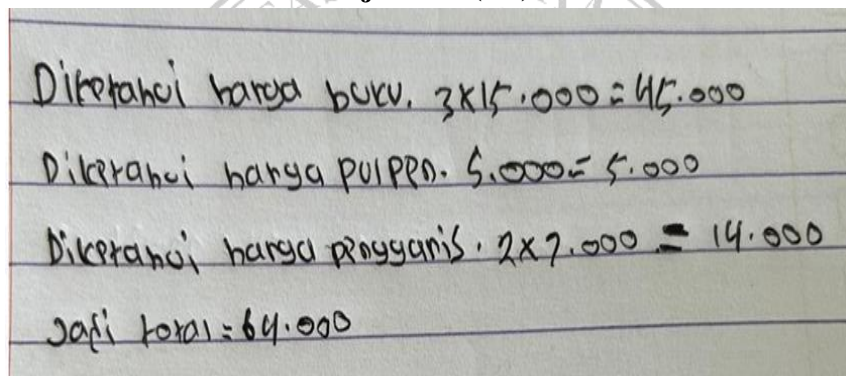 Diketahui harga buku. 3x15.000 = 45.000
Diketahui harga pulpen. 5.000 = 5.000
Diketahui harga penggaris. 2x7.000 = 14.000
Jadi total = 64.000